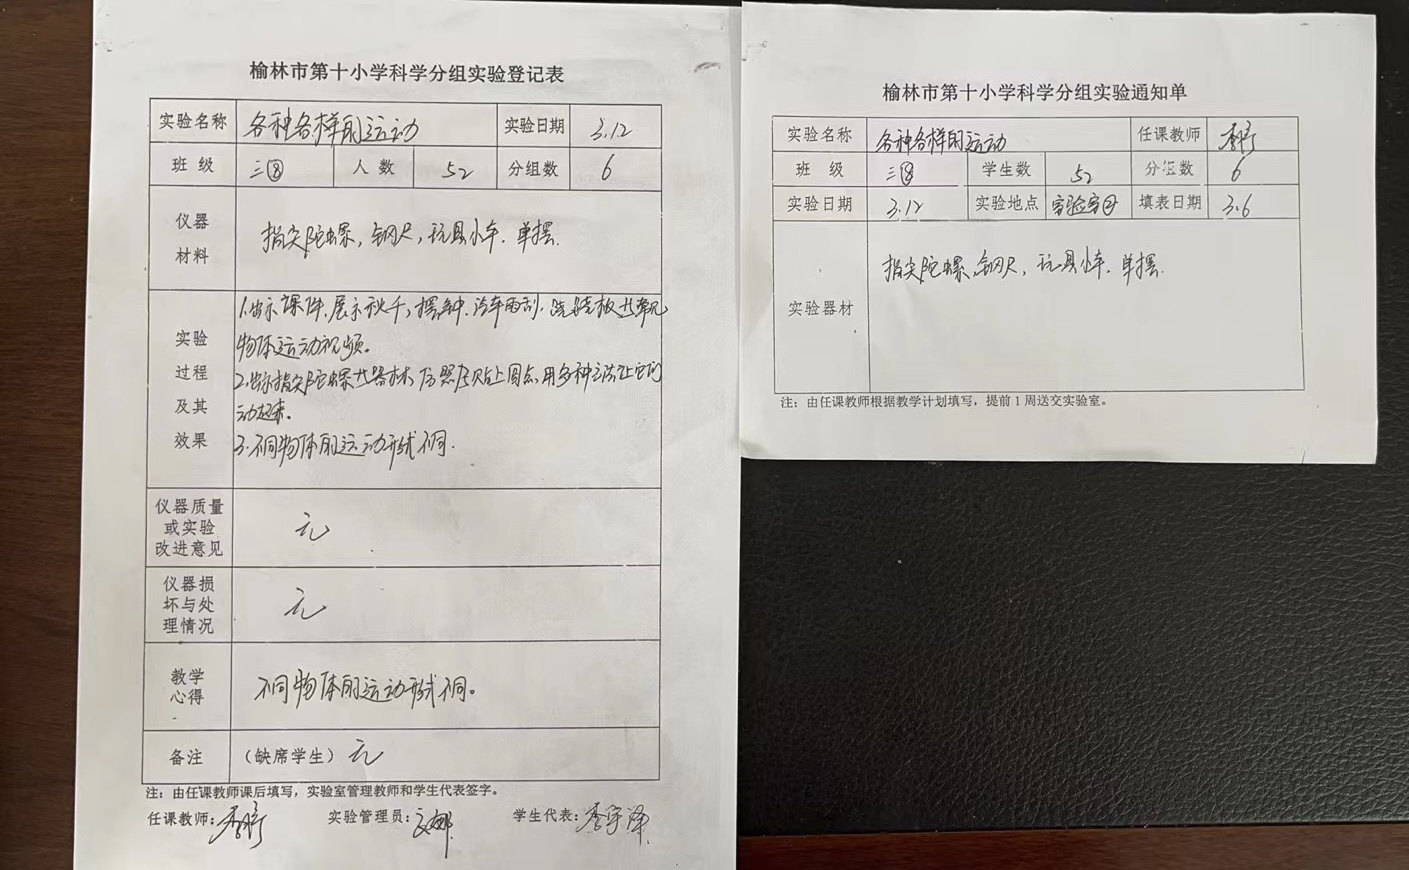 榆林市第十小学科学分组实验登记表
实验名称 各种各样的运动 实验日期 3.12
班级 三⑧ 人数 52 分组数 6
仪器
材料
指尖陀螺,钢尺,玩具小车.单摆.
实验
过程
及其
效果
1.出示课件.展示秋千,摆钟.汽车雨刮.跷跷板
物体运动视频。
2.出示指尖陀螺 器材, 贴上圆点,用多种方法让它们
动起来。
3.不同物体的运动形式不同.
仪器质量
或实验
改进意见
无
仪器损
坏与处
理情况
无
教学
心得
不同物体的运动形式不同。
备注 (缺席学生) 无
注:由任课教师课后填写,实验室管理教师和学生代表签字。
任课教师: 实验管理员: 学生代表:李宇泽
榆林市第十小学科学分组实验通知单
实验名称 各种各样的运动 任课教师
班级 三⑧ 学生数 52 分组数 6
实验日期 3.12 实验地点 实验室 填表日期 3.6
实验器材
指尖陀螺.钢尺,玩具小车.单摆.
注:由任课教师根据教学计划填写,提前1周送交实验室。